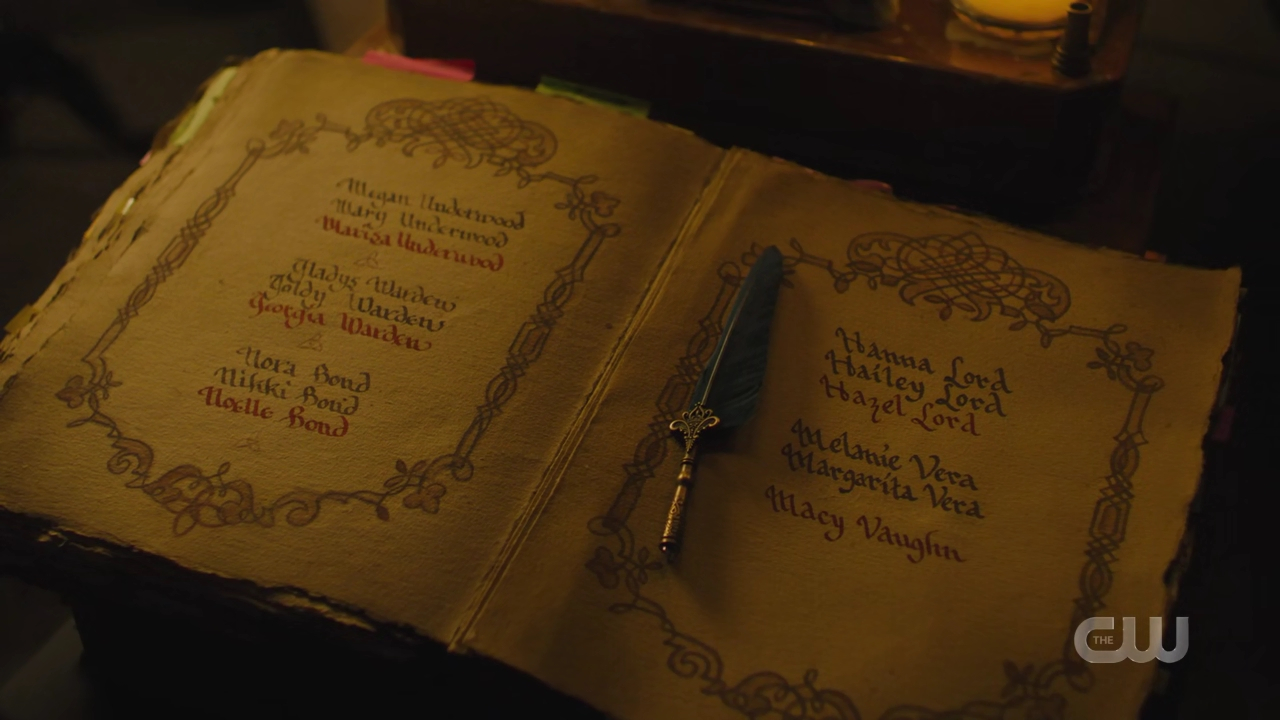 Megan Underwood
Mary Underwood
Marisa Underwood
Gladys Warden
Goldy Warden
Georgia Warden
Nora Bond
Nikki Bond
Noelle Bond
Hanna Lord
Hailey Lord
Hazel Lord
Melanie Vera
Margarita Vera
Macy Vaughn
THE CW